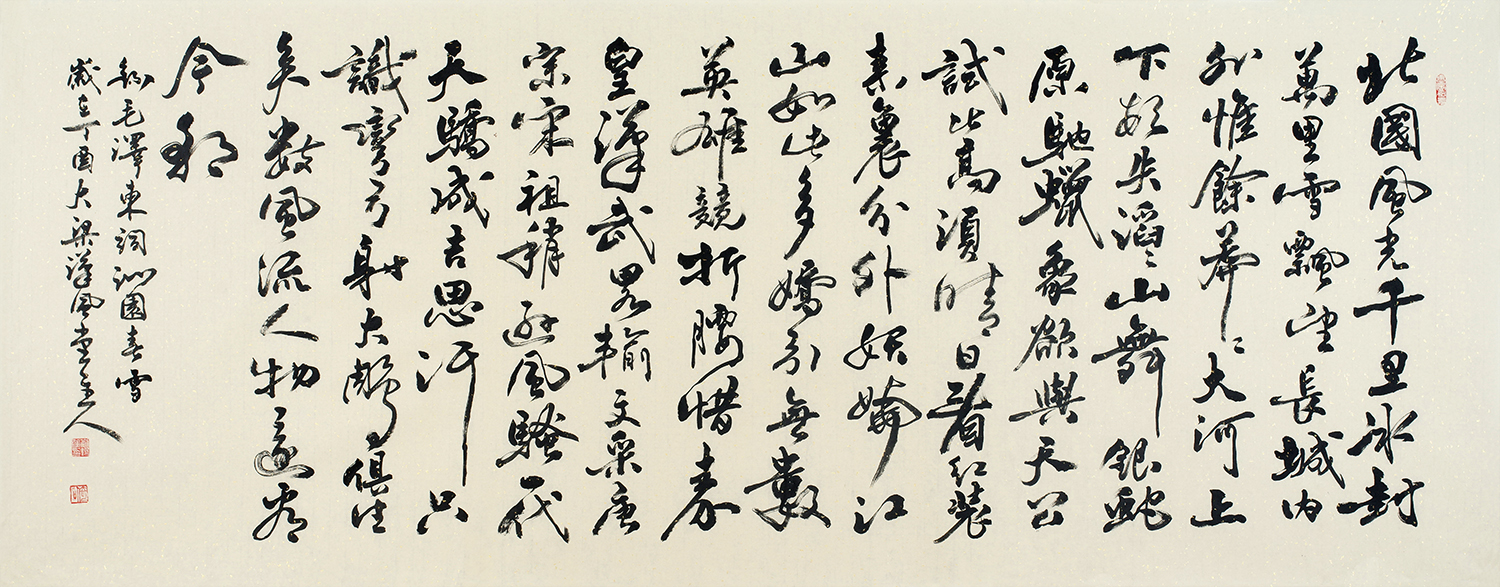 北國風光千里冰封
萬里雪飄望長城内
外惟餘莽〻大河上
下頓失滔〻山舞銀蛇
原馳蠟象欲與天公
試比高須晴日看红装
素裹分外妖嬈江
山如此多嬌引無數
英雄競折腰惜秦
皇漢武畧輸文采唐
宗宋祖稍遜風騷一代
天驕成吉思汗只
識彎弓射大鵰俱往
矣数風流人物還看
今朝
錄毛澤東詞沁園春雪
歲在丁酉大梁漢風堂主人